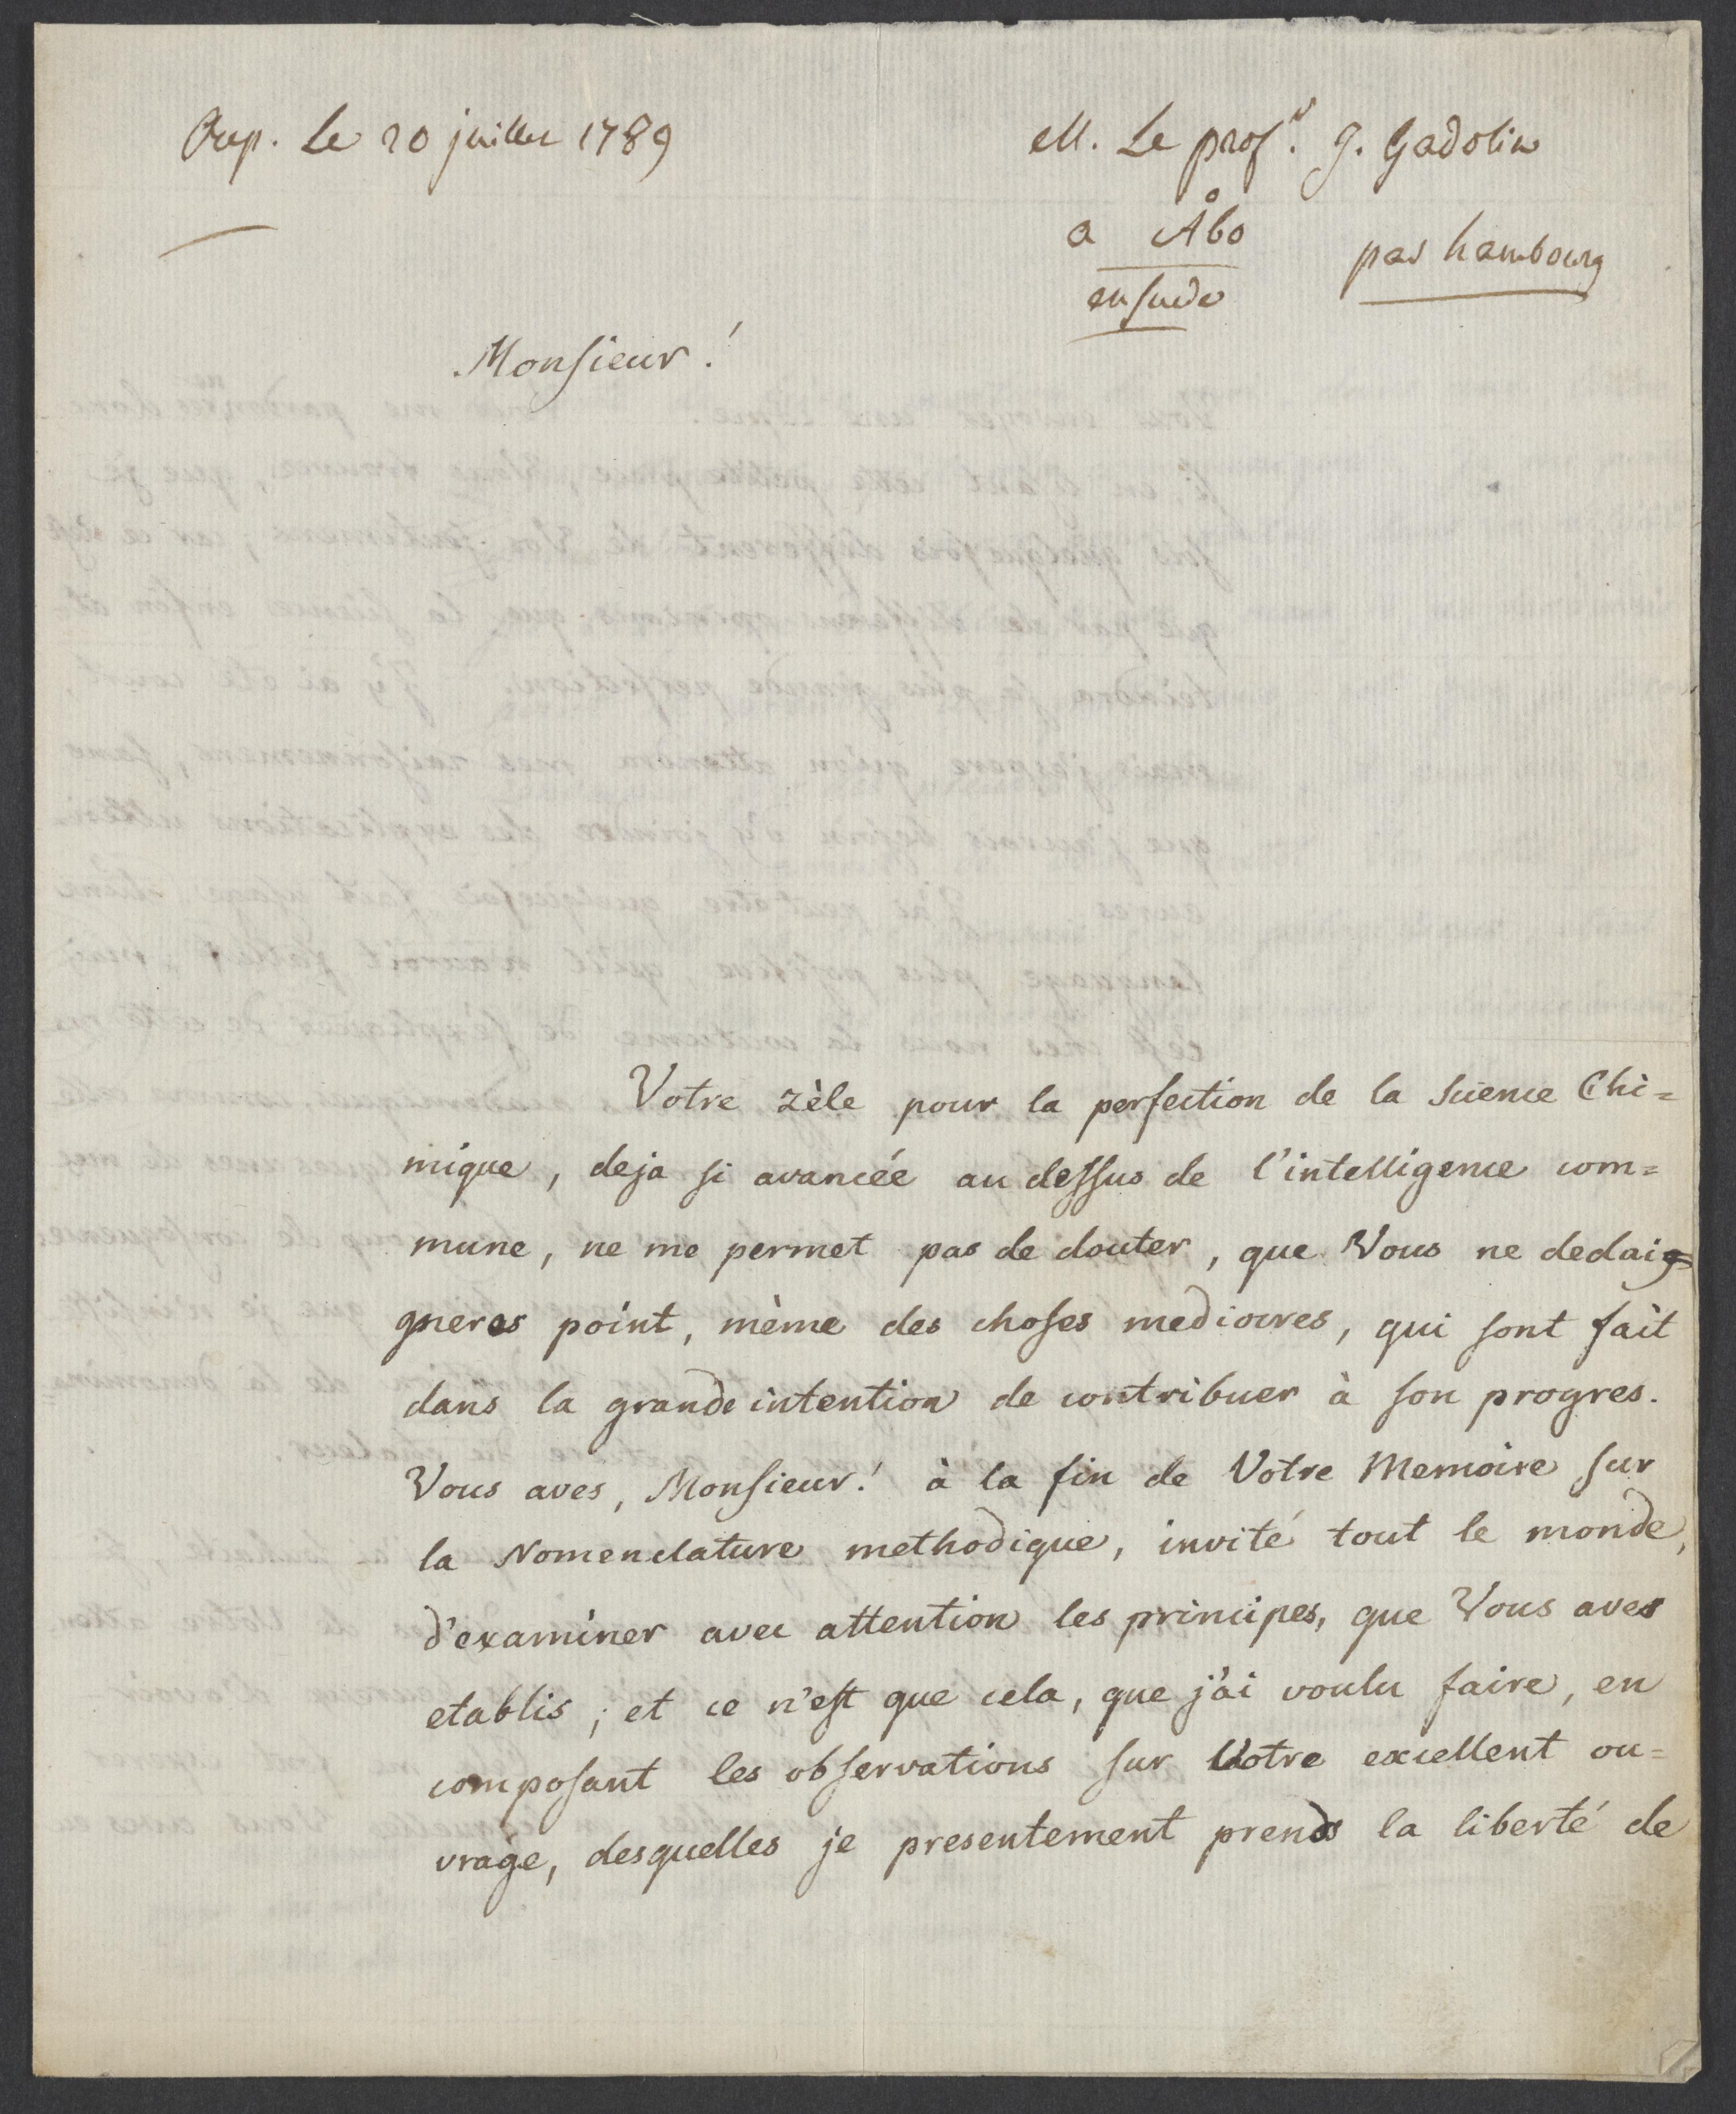 Rep. Le 20 juillet 1789
M. Le prof.r J. Gadolin
a Åbo
par hambourg
en suede
Monsieur!
Votre zèle pour la perfection de la Science Chi=
mique, deja si avancée au dessus de l'intelligence com=
mune, ne me permet pas de douter, que Vous ne dedaig
gneres point, mème des choses mediocres, qui sont fait
dans la grande intention de contribuer à son progres.
Vous aves, Monsieur! à la fin de Votre Memoire sur
la Nomenclature methodique, invité tout le monde,
d'examiner avec attention les principes, que Vous aves
etablis; et ce n'est que cela, que j'ai voulu faire, en
composant les observations sur Votre excellent ou=
vrage, desquelles je presentement prends la liberté de